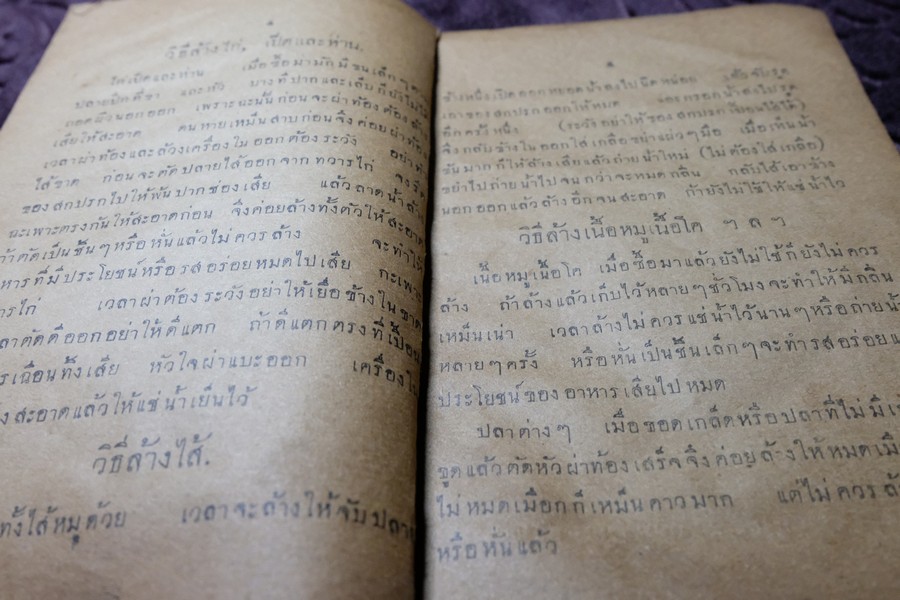 ๔
วิธีล้างไก่, เป็ดและห่าน.
ไก่เป็ดและห่าน เมื่อซื้อมามักมีขนเล็กๆ
ปลายปีกที่ขา และหัว บางที่ปากและเล็บก็ยังไม่ได้
ถอดสิ่งนอกออก เพราะฉะนั้นก่อนจะผ่าท้องต้อง
เสียให้สะอาด จนหายเหม็นสาบก่อนจึงค่อยผ่าท้อง
เวลาผ่าท้องและล้วงเครื่องในออกต้องระวัง อย่าทำ
ไส้ขาด ก่อนจะตัดปลายไส้ออกจากทวารไก่ จงรีด
ของสกปรกไปให้พ้นปากช่องเสีย แล้วลาดน้ำล้าง
ฉะเพาะตรงก้นให้สะอาดก่อน จึงค่อยล้างทั้งตัวให้สะอาด
ถ้าตัดเป็นชิ้นๆหรือหั่นแล้วไม่ควรล้าง จะทำให้
หารที่มีประโยชน์หรือรสอร่อยหมดไปเสีย กะเพาะ
ารไก่ เวลาผ่าต้องระวังอย่าให้เยื่อข้างในขาด
ลาตัดดีออกอย่าให้ดีแตก ถ้าดีแตกตรงที่เปื้อน
รเฉือนทิ้งเสีย หัวใจผ่าแบะออก เครื่องใน
งสะอาดแล้วให้แช่น้ำเย็นไว้
วิธีล้างไส้.
ทั้งไส้หมูด้วย เวลาจะล้างให้จับปลาย
๕
ข้างหนึ่งเปิดออกหยอดน้ำลงไปนิดหน่อย แล้วจึงรูด
เอาของสกปรกออกให้หมด และกรอกน้ำลงไปรูด
อีกครั้งหนึ่ง (ระวังอย่าให้ของสกปรกย้อนไปได้)
จึงกลับข้างในออกใส่เกลือขยำแผ่วๆมือ เมื่อเห็นน้ำ
ข้นมากก็ให้ล้างเสียแล้วถ่ายน้ำใหม่ (ไม่ต้องใส่เกลือ)
ขยำไปถ่ายน้ำไปจนกว่าจะหมดกลิ่น กลับไส้เอาข้าง
นอกออกแล้วล้างอีกจนสะอาด ถ้ายังไม่ใช้ให้แช่น้ำไว้
วิธีล้างเนื้อหมูเนื้อโค ฯ ล ฯ
เนื้อหมูเนื้อโค เมื่อซื้อมาแล้วยังไม่ใช้ก็ยังไม่ควร
ล้าง ถ้าล้างแล้วเก็บไว้หลายๆชั่วโมงจะทำให้มีกลิ่น
เหม็นเน่า เวลาล้างไม่ควรแช่น้ำไว้นานๆหรือถ่ายน้ำ
หลายๆครั้ง หรือหั่นเป็นชิ้นเล็กๆจะทำรสอร่อยแ
ประโยชน์ของอาหารเสียไปหมด
ปลาต่างๆ เมื่อขอดเกล็ดหรือปลาที่ไม่มีเ
ขูดแล้วตัดหัวผ่าท้องเสร็จจึงค่อยล้างให้หมดเมื
ไม่หมดเมือกก็เหม็นคาวมาก แต่ไม่ควรล้
หรือหั่นแล้ว